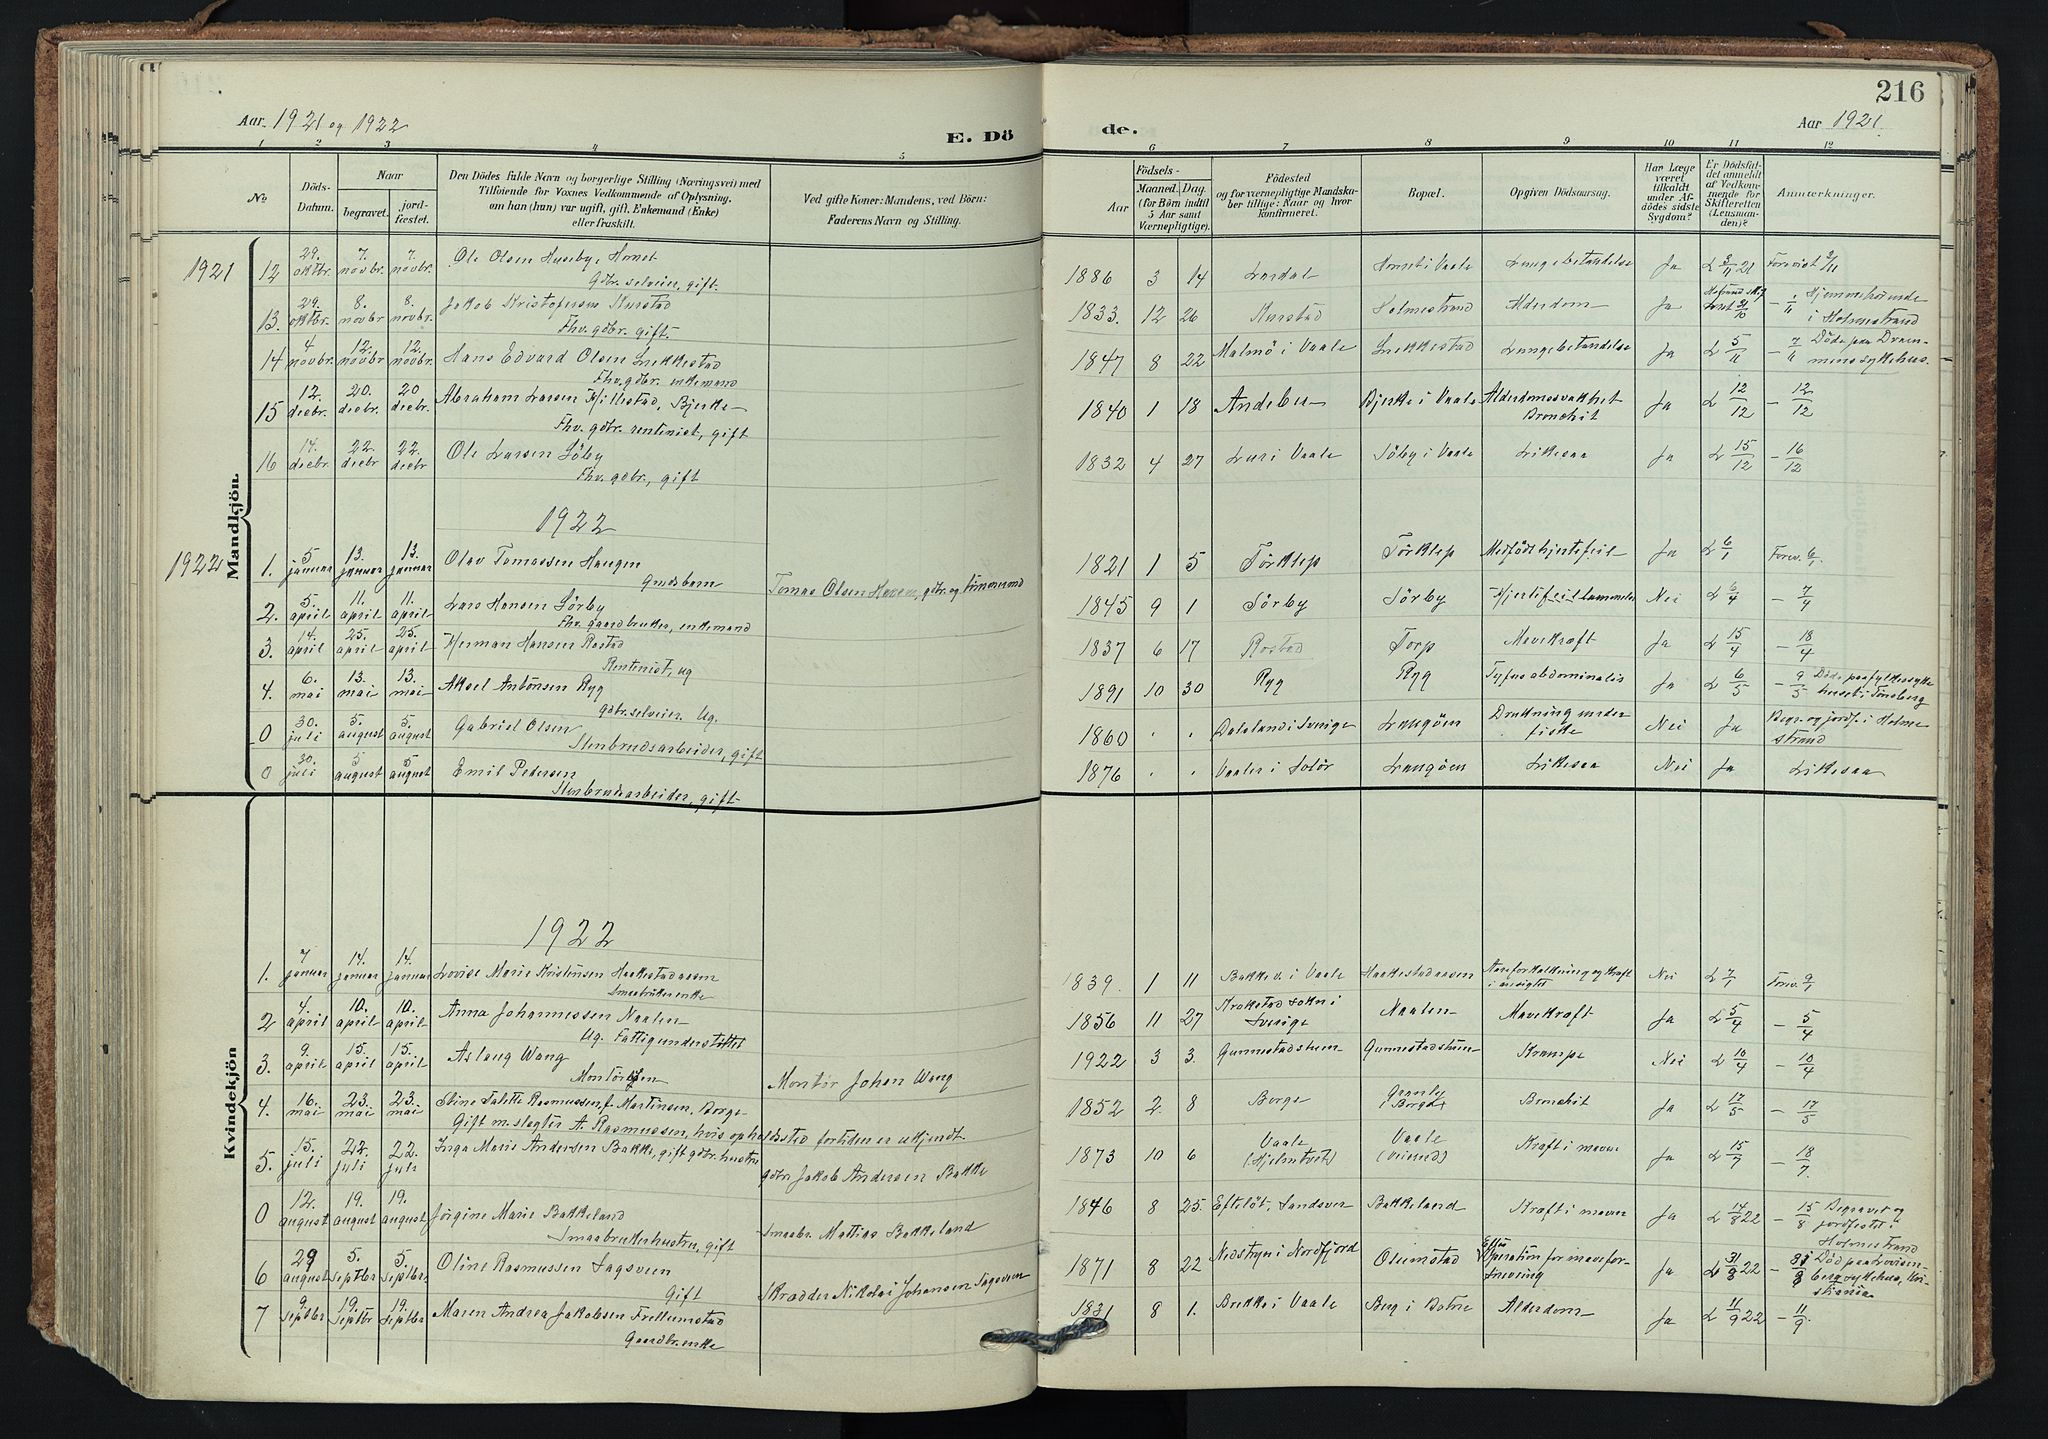 216
Aar. 1921 og 1922
E. Dö
de.
Aar 1921.
1 2 3 4 5 6 7 8 9 10 11 12
No
Döds-Datum.
Naar
begravet.
jordfæstet.
Den Dödes fulde Navn og borgerlige Stilling (Næringsvei) med
Tilföiende for Voxnes Vedkommende af Oplysning,
om han (hun) var ugift, gift, Enkemand (Enke)
eller fraskilt.
Ved gifte Koner: Mandens, ved Börn:
Faderens Navn og Stilling.
Födsels-
Aar
Maaned. Dag.
(for Börn indtil
5 Aar samt
Værnepligtige).
Födested
og for værnepligtige Mandskaber tillige: Naar og hvor
konfirmeret.
Bopæl.
Opgiven Dödsaarsag.
Har Læge
været
tilkaldt
under Afdödes sidste
Sygdom?
Er Dödsfaldet anmeldt
af Vedkommende for
Skifteretten
(Lensmanden)?
Anmærkninger.
Mandkjön.
1921
12 29. oktbr. 7. novbr. 7. novbr. Ole Olsen Huseby, Hornet 1886 3 14 Lardal Hornet i Vaale Lungebetændelse Ja L 3/11 21 Forevist 3/11
Gdbr. selveier, gift.
13. 29. oktbr. 8. novbr 8. novbr. Jakob Kristofersen Kurstad 1833. 12 26 Kurstad Holmestrand Alderdom Ja 31/10 – 1/11 Hjemmehörende
Fhv. gdbr. gift
i Holmestrand
14 4 novbr. 12. novbr 12. novbr. Hans Edvard Olsen Snekkestad 1847 8 22 Malmö i Vaale Snekkestad Lungebetændelse Ja L 5/11 – 7/11 Döde paa Drammens sykehus.
Fhv. gdbr. enkemand
15 12. decbr. 20. decbr. 20 decbr. Abraham Larsen Hillestad, Bjerke 1840 1 18 Andebu Bjerke i Vaale Alderdomssvakhet Ja L 12/12 – 12/12
Bronchit
Fhv. gdbr. rentenist, gift
16 14. decbr. 22. decbr 22. decbr Ole Larsen Söby 1832 4 27 Lur i Vaale Söby i Vaale Likesaa Ja L 15/12 – 16/12
Fhv. gdbr., gift
1922
1922
1. 5 januar 13. januar 13. januar Olav Tomassen Haugen 1821 1 5 Törklep Törklep Medfödt hjertefeil Ja L 6/1 Forev. 6/1
Gmdsbarn Tomas Olsen
2. 5 april 11. april 11. april Lars Hansen Sörby 1845 9 1 Sörby Sörby Nei L 6/4 – 7/4
Fhv. gaardbruker, enkemand
3. 14. april 25. april 25. april Herman Hansen Rostad 1837 6 17 Rostad Torp Mavekræft Ja L 15/4 – 18/4
Rentenist, ug
4. 6. mai 13. mai 13. mai Aksel Antonsen Ryg 1891 10 30 Ryg Ryg Tyfus abdominalis Ja L 6/5 – 9/5 Döde paa fylkessykehuset i Tönsberg
Gdbr. selveier. Ug.
0 30. juli 5. august 5. august Gabriel Olsen 1860 " " Dalsland i Sverige Langöen Drukning under Nei Ja Begr. og jordf. i Holmestrand
fiske
Stenbrudsarbeider, gift
0 30. juli 5 august 5 august Emil Pedersen 1876 " " Vaaler i Solör Langöen Likesaa Nei Ja Likesaa
Stenbrudsarbeider, gift
Kvindekjön
1922
1. 7 januar 14. januar 14. januar Lovise Marie Kristensen Haakestadaasen 1839. 1 11 Bakke i Vaale Haakestadaasen Aareforkalkning og Kræft Nei L 7/1 Forev. 9/1
i ansigtet
Smaabrukerenke
2 4. april 10. april 10. april Anna Johannessen Naalen 1856 11 27 Krokstad sokn i Naalen Mavekræft Ja L 5/4 – 5/4
Sverige
Ug. Fattigunderstöttet
3. 9. april 15. april 15. april Aslaug Wang 1922 3 3. Gunnestadstuen Gunnestadstuen Krampe Nei L 10/4 – 10/4
Montör Johan Wang
4. 16. mai 23. mai 23. mai Stine Talette Rasmussen, f. Martinsen, Borge 1852 2. 8 Borge Bronchit Ja L 17/5 – 17/5
Gift m. slagter A. Rasmussen, hvis opholdssted fortiden er ukjendt
5. 15. juli 22. juli 22. juli Inga Marie Andersen Bakke, gift gdbr. hustru 1873 10 6 Vaale Vaale Kræft i maven Ja L 15/7 – 18/7
Gdbr Jakob Andersen Bakke
0 12. august 19. august 19. august Jörgine Marie Bakkeland 1846 8 25. Efteløt, Sandsvær Bakkeland Kræft i maven Ja L 14/8 22 – 15/8 Begravet og
jordfestet i
Holmestrand
Smaabrukerhustru, gift Smaabr. Mattias Bakkeland
6 29 august 5. septbr 5. septbr. Oline Rasmussen Sagsveen 1871 8 22 Nedstryn i Nordfjord Olumstad Efter Operation for maveforsnevring Ja L 31/8 22 – 31/8 Död paa Lovisenberg sykehus, Kristiania
Gift Skrædder Nikolai Johansen Sagsveen
7 9. septbr 19. septbr 19. septbr Maren Andrea Jakobsen Frellumstad 1831 8 1. Brekke i Vaale Berg i Botne Alderdom Ja L 11/9 22 – 11/9.
Gaardbr. enke